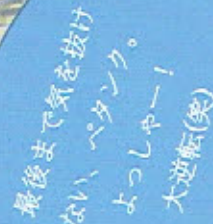 最後まで気を抜け
ない、ペタンク。
よっしゃー！
大逆転(笑)